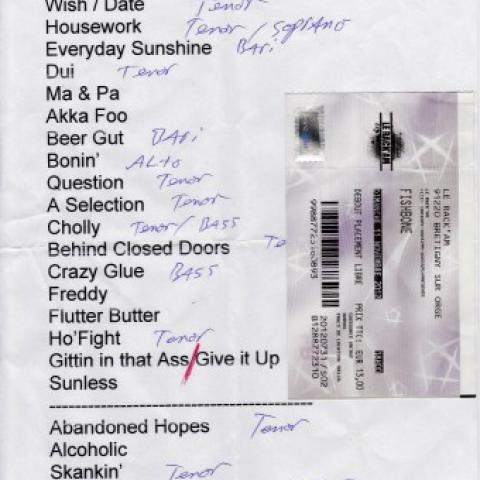 Wish / Date Tenor
Housework Tenor / Soprano
Everyday Sunshine Bari
Dui Tenor
Ma & Pa
Akka Foo
Beer Gut Bari
Bonin' Alto
Question Tenor
A Selection Tenor
Cholly Tenor/Bass
Behind Closed Doors Te
Crazy Glue Bass
Freddy
Flutter Butter
Ho'Fight Tenor
Gittin in that Ass/Give it Up
Sunless
Abandoned Hopes Tenor
Alcoholic
Skankin' Tenor
LE RACK'AM
LE RACK'AM
91220 BRETIGNY SUR ORGE
FISHBONE
DIMANCHE 11 NOVEMBRE 2012
DEBOUT PLACEMENT LIBRE
PRIX TTC: EUR 13,00
20120731/S02
B1288772310